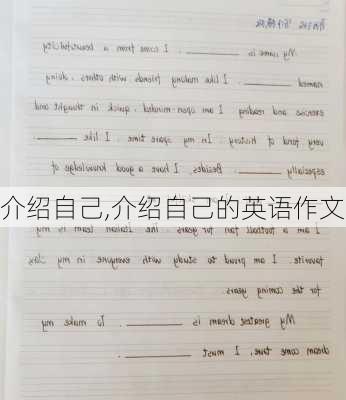 My name is ______. I come from a beautiful city
named ______. I like making friends with others, doing
exercise and reading. I am open-minded, quick in thought and
very fond of history. In my spare time, I like ______
especially ______. Besides, I have a good knowledge of
介绍自己,介绍自己的英语作文
I am a football fan for years. The Italian team is my
favorite. I am proud to study with everyone in my class
for the coming years.
My greatest dream is ______. To make my
dream come true, I must ______.